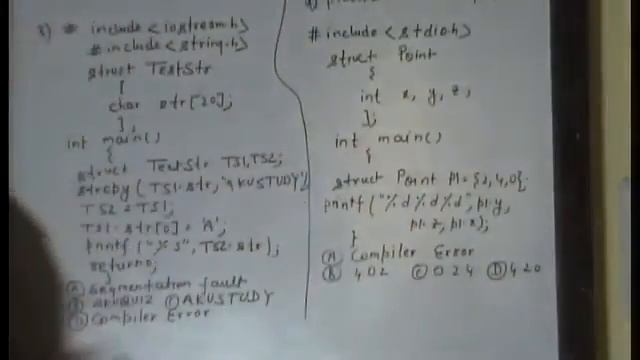 # include <iostream.h>
# include <string.h>
struct TestStr
{
char str[20];
};
int main()
{
struct TestStr TS1, TS2;
strcpy (TS1.str, "AKUSTUDY")
TS2 = TS1;
TS1.str[0] = 'A';
printf ("%s", TS2.str);
return 0;
}
(A) Segmentation fault
(C) AKUSTUDY
(D) Compiler Error
# include <stdio.h>
struct Point
{
int x, y, z;
};
int main()
{
struct Point p1 = {2, 4, 0};
printf ("%d %d %d", p1.y,
p1.z, p1.x);
}
(A) Compiler Error
(B) 402 (C) 024 (D) 420